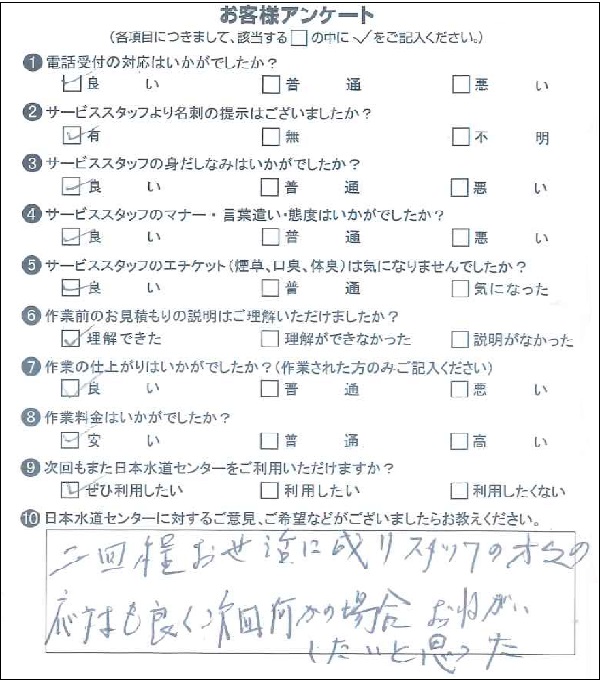 お客様アンケート
(各項目につきまして、該当する□の中に✓をご記入ください。)
❶電話受付の対応はいかがでしたか?
☑良い □普通 □悪い
❷サービススタッフより名刺の提示はございましたか?
☑有 □無 □不明
❸サービススタッフの身だしなみはいかがでしたか?
☑良い □普通 □悪い
❹サービススタッフのマナー・言葉遣い・態度はいかがでしたか?
☑良い □普通 □悪い
❺サービススタッフのエチケット(煙草、口臭、体臭)は気になりませんでしたか?
☑良い □普通 □気になった
❻作業前のお見積もりの説明はご理解いただけましたか?
☑理解できた □理解ができなかった □説明がなかった
❼作業の仕上がりはいかがでしたか?(作業された方のみご記入ください)
☑良い □普通 □悪い
❽作業料金はいかがでしたか?
☑安い □普通 □高い
❾次回もまた日本水道センターをご利用いただけますか?
☑ぜひ利用したい □利用したい □利用したくない
❿日本水道センターに対するご意見、ご希望などがございましたらお教えください。
二回程お世話に成りスタッフの方の
応対も良く次回何かの場合おねがい
したいと思った